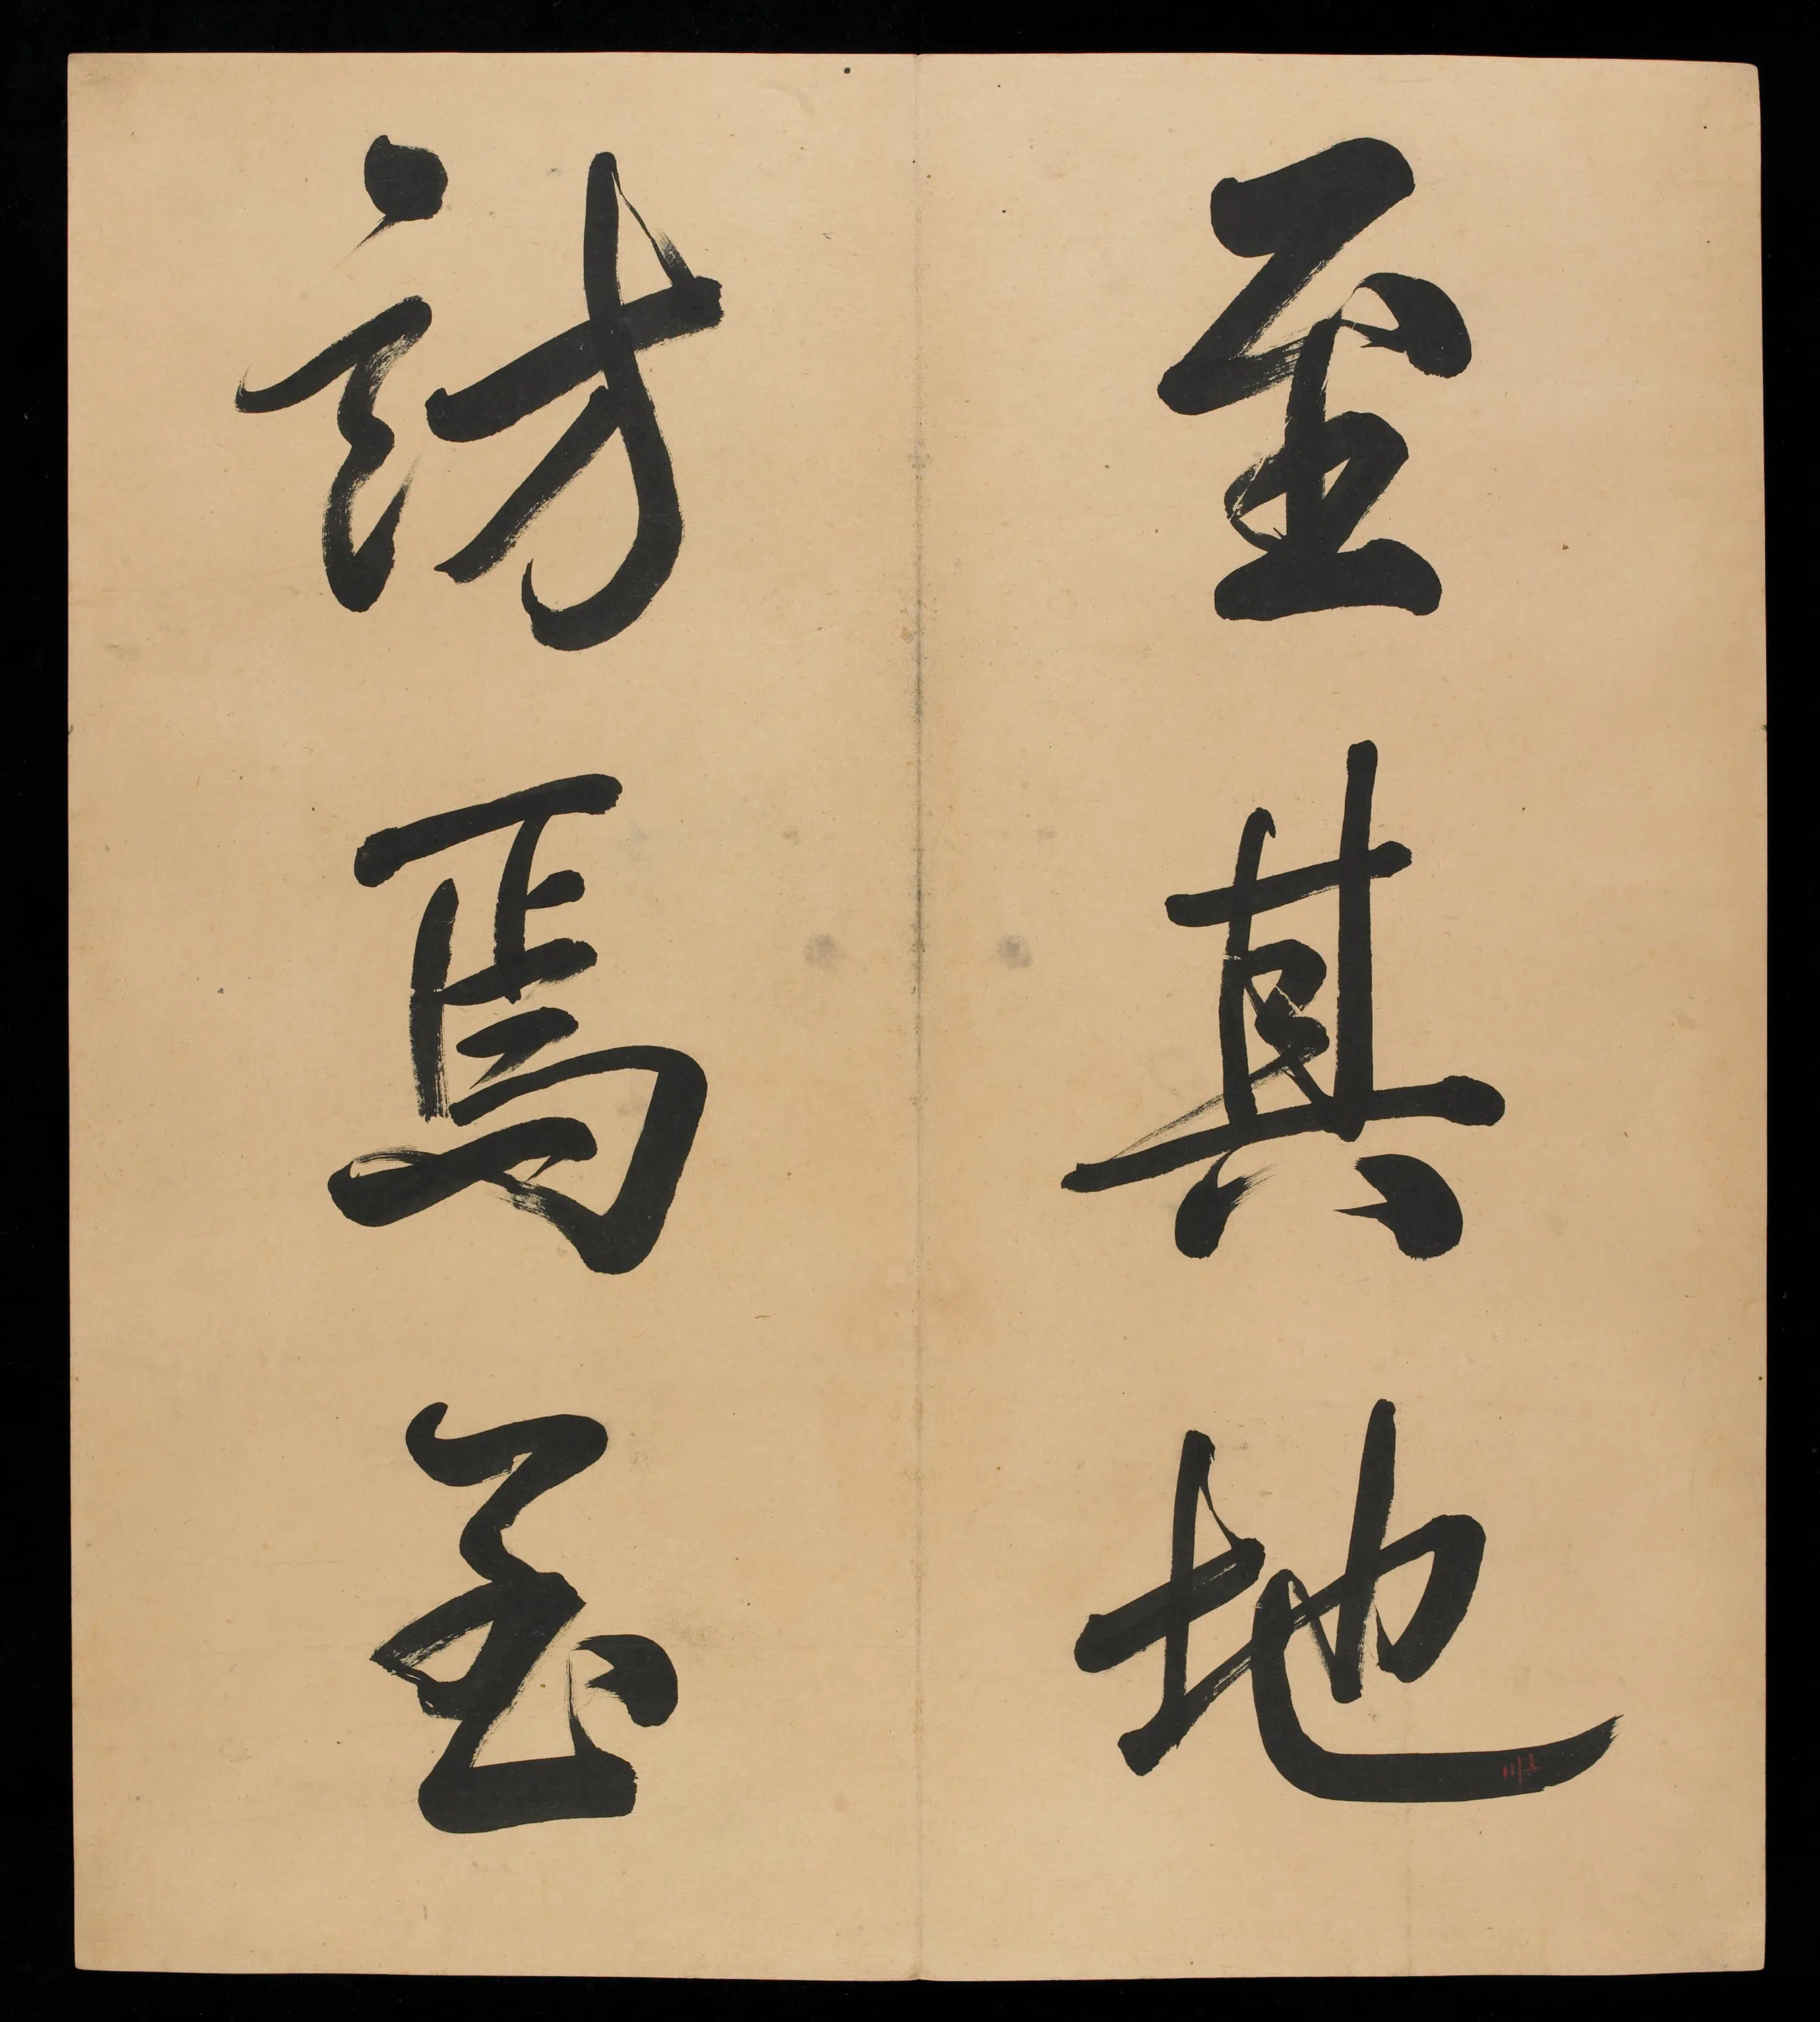 至其地
訪焉